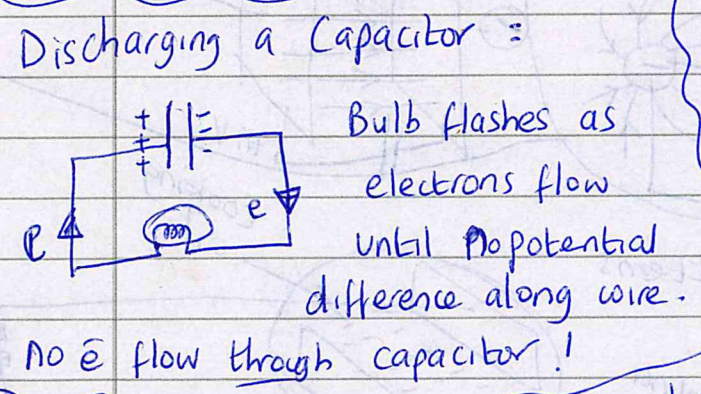 Discharging a Capacitor :
Bulb flashes as
electrons flow
until no potential
difference along wire.
+ + +
- - -
e
e
no e̅ flow through capacitor!